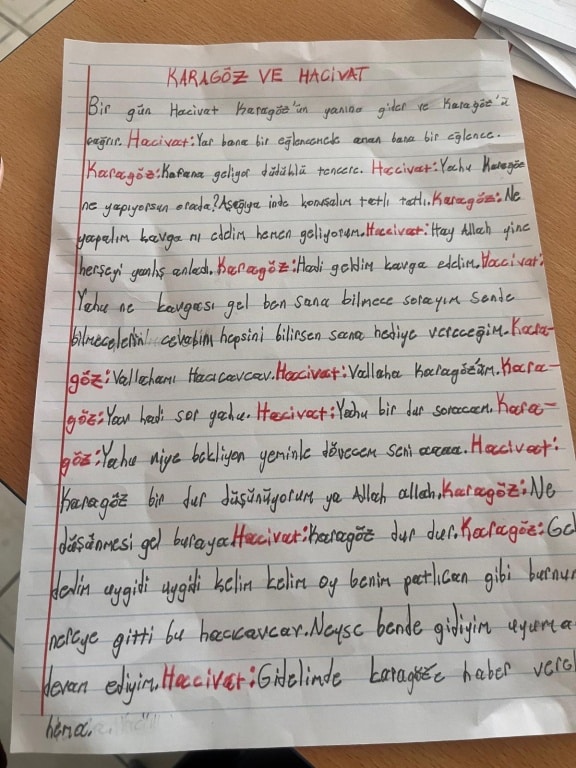 KARAGÖZ VE HACİVAT
Bir gün Hacivat Karagöz'ün yanına gider ve Karagöz'ü
çağrır. Hacivat: Yar bana bir eğlenemede aman bana bir eğlence.
Karagöz: Kafana geliyor düdüklü tencere. Hacivat: Yahu Karagöz
ne yapıyorsun orada? Aşağıya inde konuşalım tatlı tatlı. Karagöz: Ne
yapalım kavga mı eddim hemen geliyorum. Hacivat: Hay Allah yine
herşeyi yanlış anladı. Karagöz: Hadi geldim kavga edelim. Hacivat:
Yahu ne kavgası gel ben sana bilmece sorayım sende
bilmecelerin cevabını hepsini bilirsen sana hediye vereceğim. Kara-
göz: Vallahamı Hacıcavcav. Hacivat: Vallaha Karagözüm. Kara-
göz: Yaav hadi sor yahu. Hacivat: Yahu bir dur soracam. Kara-
göz: Yahu niye bekliyon yeminle dövecem seni aaaaa. Hacivat:
Karagöz bir dur düşünüyorum ya Allah allah. Karagöz: Ne
düşünmesi gel buraya. Hacivat: Karagöz dur dur. Karagöz: Gel
dedim uygidi uygidi kelim kelim oy benim patlıcan gibi burnum
nereye gitti bu hacıcavcav. Neyse bende gidiyim uyuma
devam ediyim. Hacivat: Gidelimde karagöze haber verel